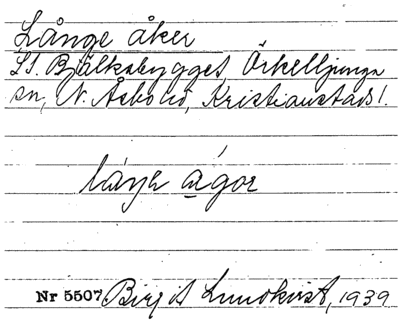 Långe åker
St. Bjälkabygget, Örkelljunga
sn, N. Åsbo hd, Kristianstads l.
Nr 5507 Birgit Lundkvist, 1939